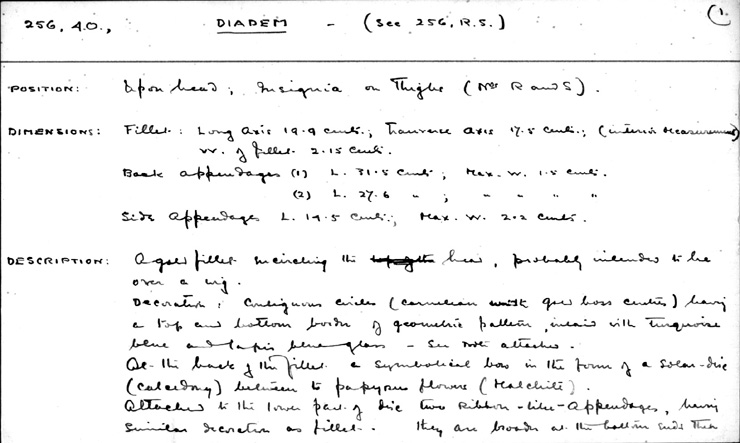 (1.
256, 4.O., DIADEM - (See 256, R.S.)
POSITION: Upon head; Insignia on Thighs (Nos R and S).
DIMENSIONS: Fillet: Long Axis 19.9 cents.; Tranverse axis 17.5 cents.; (interior measurement)
W. of fillet 2.15 cents.
Back appendages (1) L. 31.5 cents; Max. W. 1.5 cents.
(2) L. 27.6 " ; " " " "
Side Appendages L. 14.5 cents.; Max. W. 2.2 cents.
DESCRIPTION: A gold fillet encircling the head, probably intended to be
over a wig.
Decoration: Contiguous circles (carnelian with gold boss centres) having
a top and bottom border of geometric pattern, inlaid with turquoise
blue and lapis blue glass - See note attached.
At the back of the fillet a symbolical bow in the form of a Solar-disc
(calcedony) between to papyrus flowers (Malachite).
Attached to the lower part of disc two Ribbon-like-Appendages, having
similar decoration as fillet. They are broader at the bottom ends than